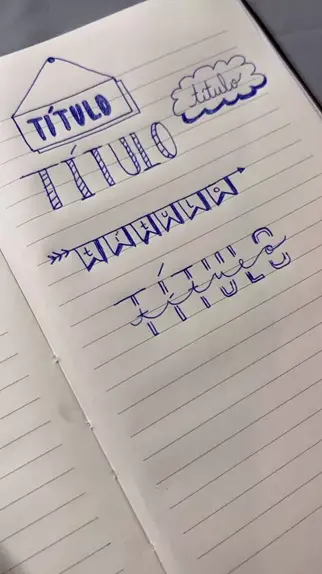 TÍTULO
título
TÍTULO
TÍTULO
TÍTULO
título